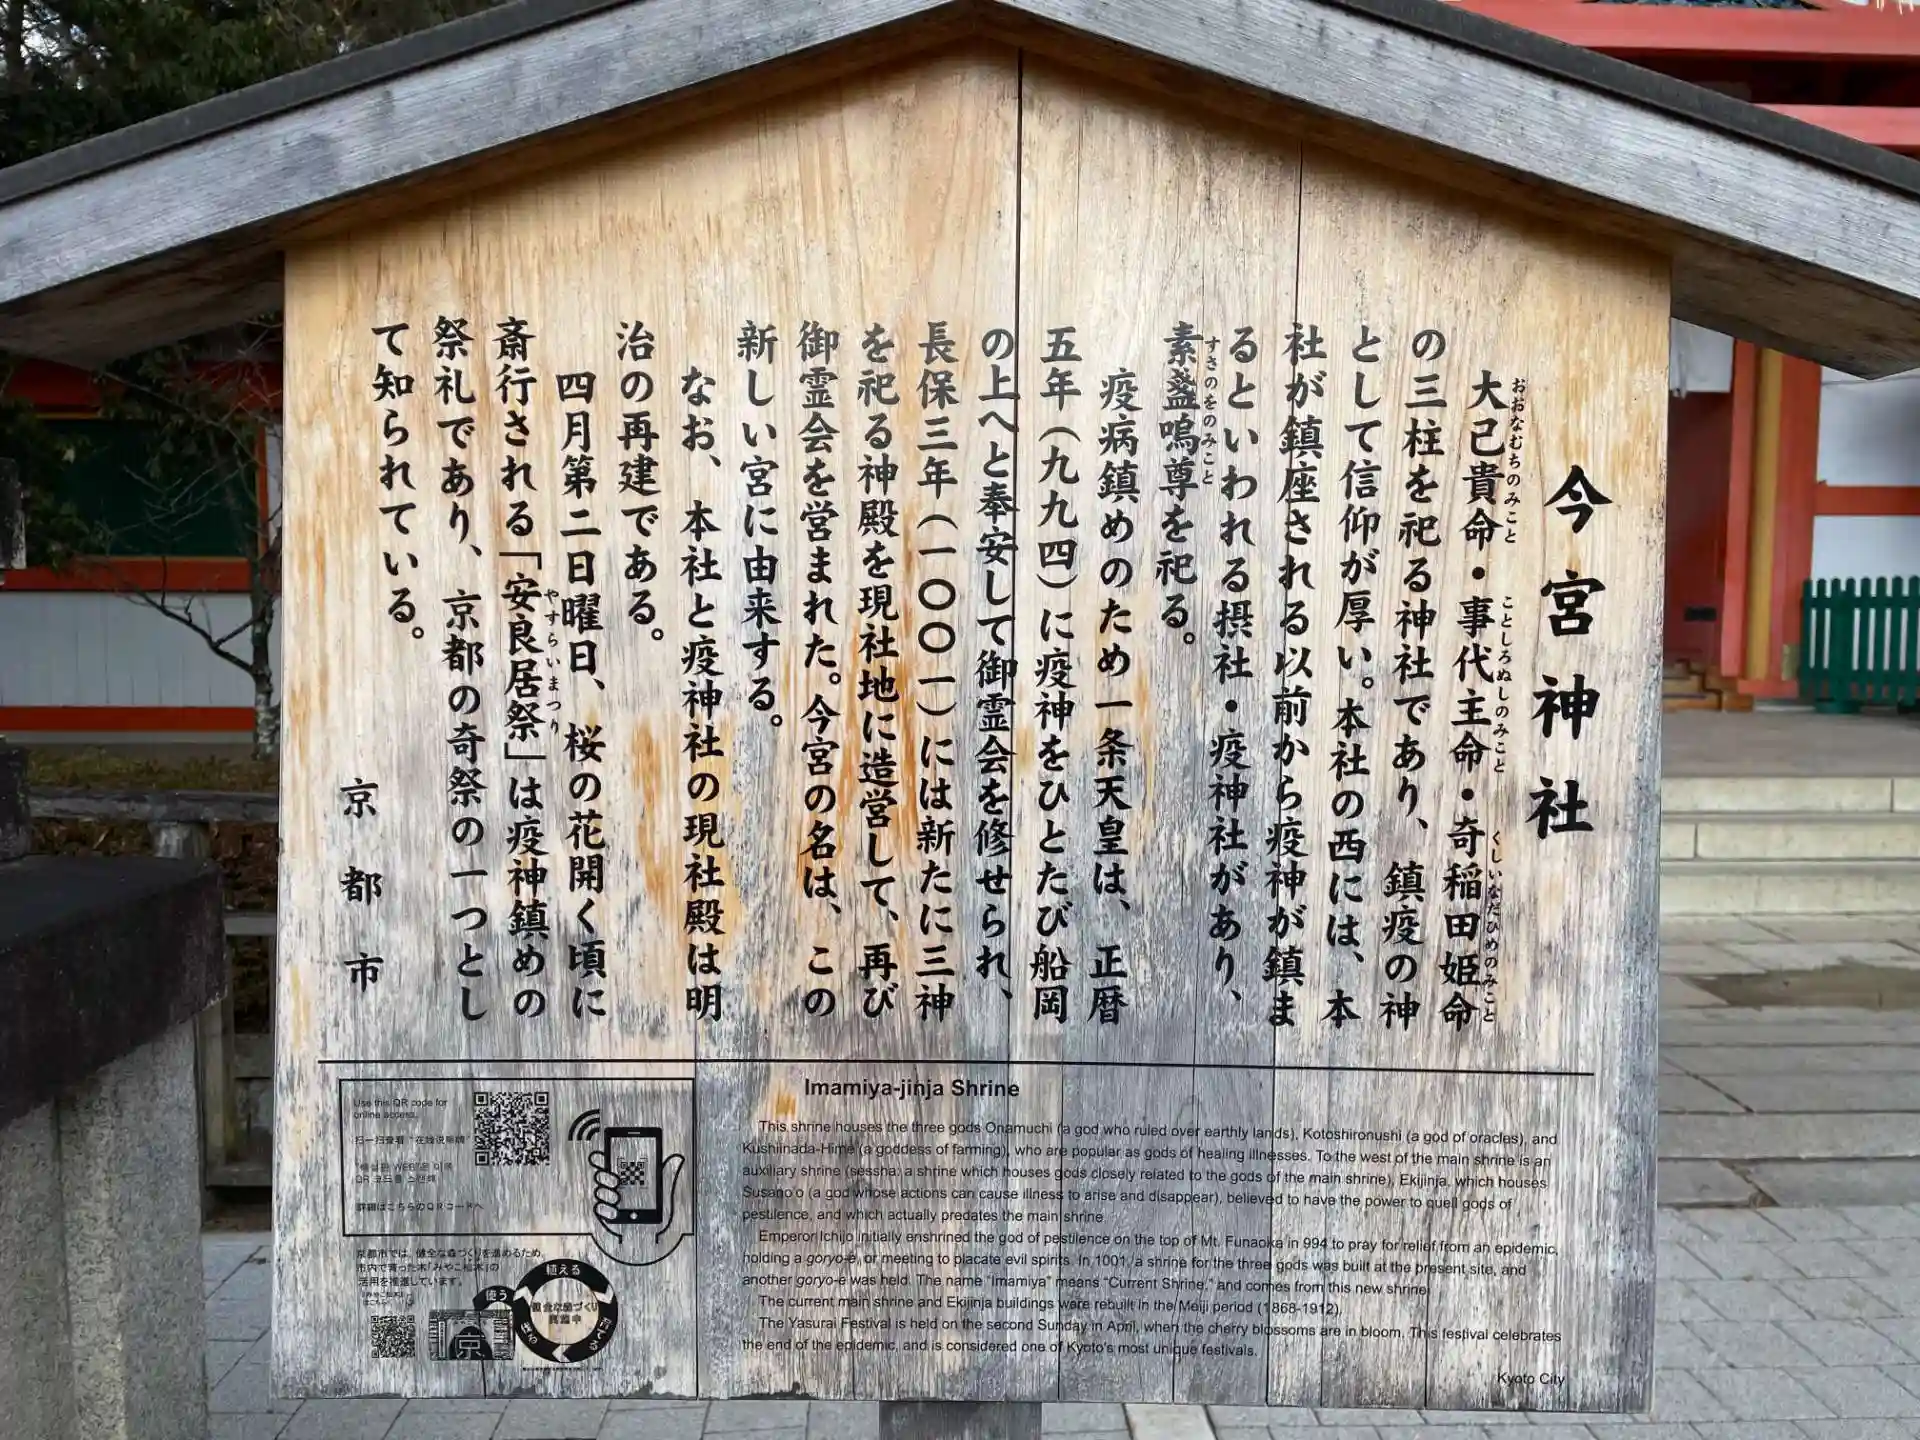 今宮神社
大己貴命・事代主命・奇稲田姫命
おおなむちのみこと
ことしろぬしのみこと
くしいなだひめのみこと
の三柱を祀る神社であり、鎮疫の神
として信仰が厚い。本社の西には、本
社が鎮座される以前から疫神が鎮ま
るといわれる摂社・疫神社があり、
素盞嗚尊を祀る。
すさのをのみこと
疫病鎮めのため一条天皇は、正暦
五年(九九四)に疫神をひとたび船岡
の上へと奉安して御霊会を修せられ、
長保三年(一〇〇一)には新たに三神
を祀る神殿を現社地に造営して、再び
御霊会を営まれた。今宮の名は、この
新しい宮に由来する。
なお、本社と疫神社の現社殿は明
治の再建である。
四月第二日曜日、桜の花開く頃に
斎行される「安良居祭」は疫神鎮めの
やすらいまつり
祭礼であり、京都の奇祭の一つとし
て知られている。
京都市
Use this QR code for
online access.
扫一扫查看"在线说明牌"
QR 코드를 스캔해
詳細はこちらのQRコードへ
京都市では、健全な森づくりを進めるため、
市内で育った木「みやこ杣木」の
活用を推進しています。
植える
使う
京
Imamiya-jinja Shrine
This shrine houses the three gods Onamuchi (a god who ruled over earthly lands), Kotoshironushi (a god of oracles), and
Kushiinada-Hime (a goddess of farming), who are popular as gods of healing illnesses. To the west of the main shrine is an
auxiliary shrine (sessha: a shrine which houses gods closely related to the gods of the main shrine), Ekijinja, which houses
Susano'o (a god whose actions can cause illness to arise and disappear), believed to have the power to quell gods of
pestilence, and which actually predates the main shrine.
Emperor Ichijo initially enshrined the god of pestilence on the top of Mt. Funaoka in 994 to pray for relief from an epidemic,
holding a goryo-e, or meeting to placate evil spirits. In 1001, a shrine for the three gods was built at the present site, and
another goryo-e was held. The name "Imamiya" means "Current Shrine," and comes from this new shrine.
The current main shrine and Ekijinja buildings were rebuilt in the Meiji period (1868-1912).
The Yasurai Festival is held on the second Sunday in April, when the cherry blossoms are in bloom. This festival celebrates
the end of the epidemic, and is considered one of Kyoto's most unique festivals.
Kyoto City